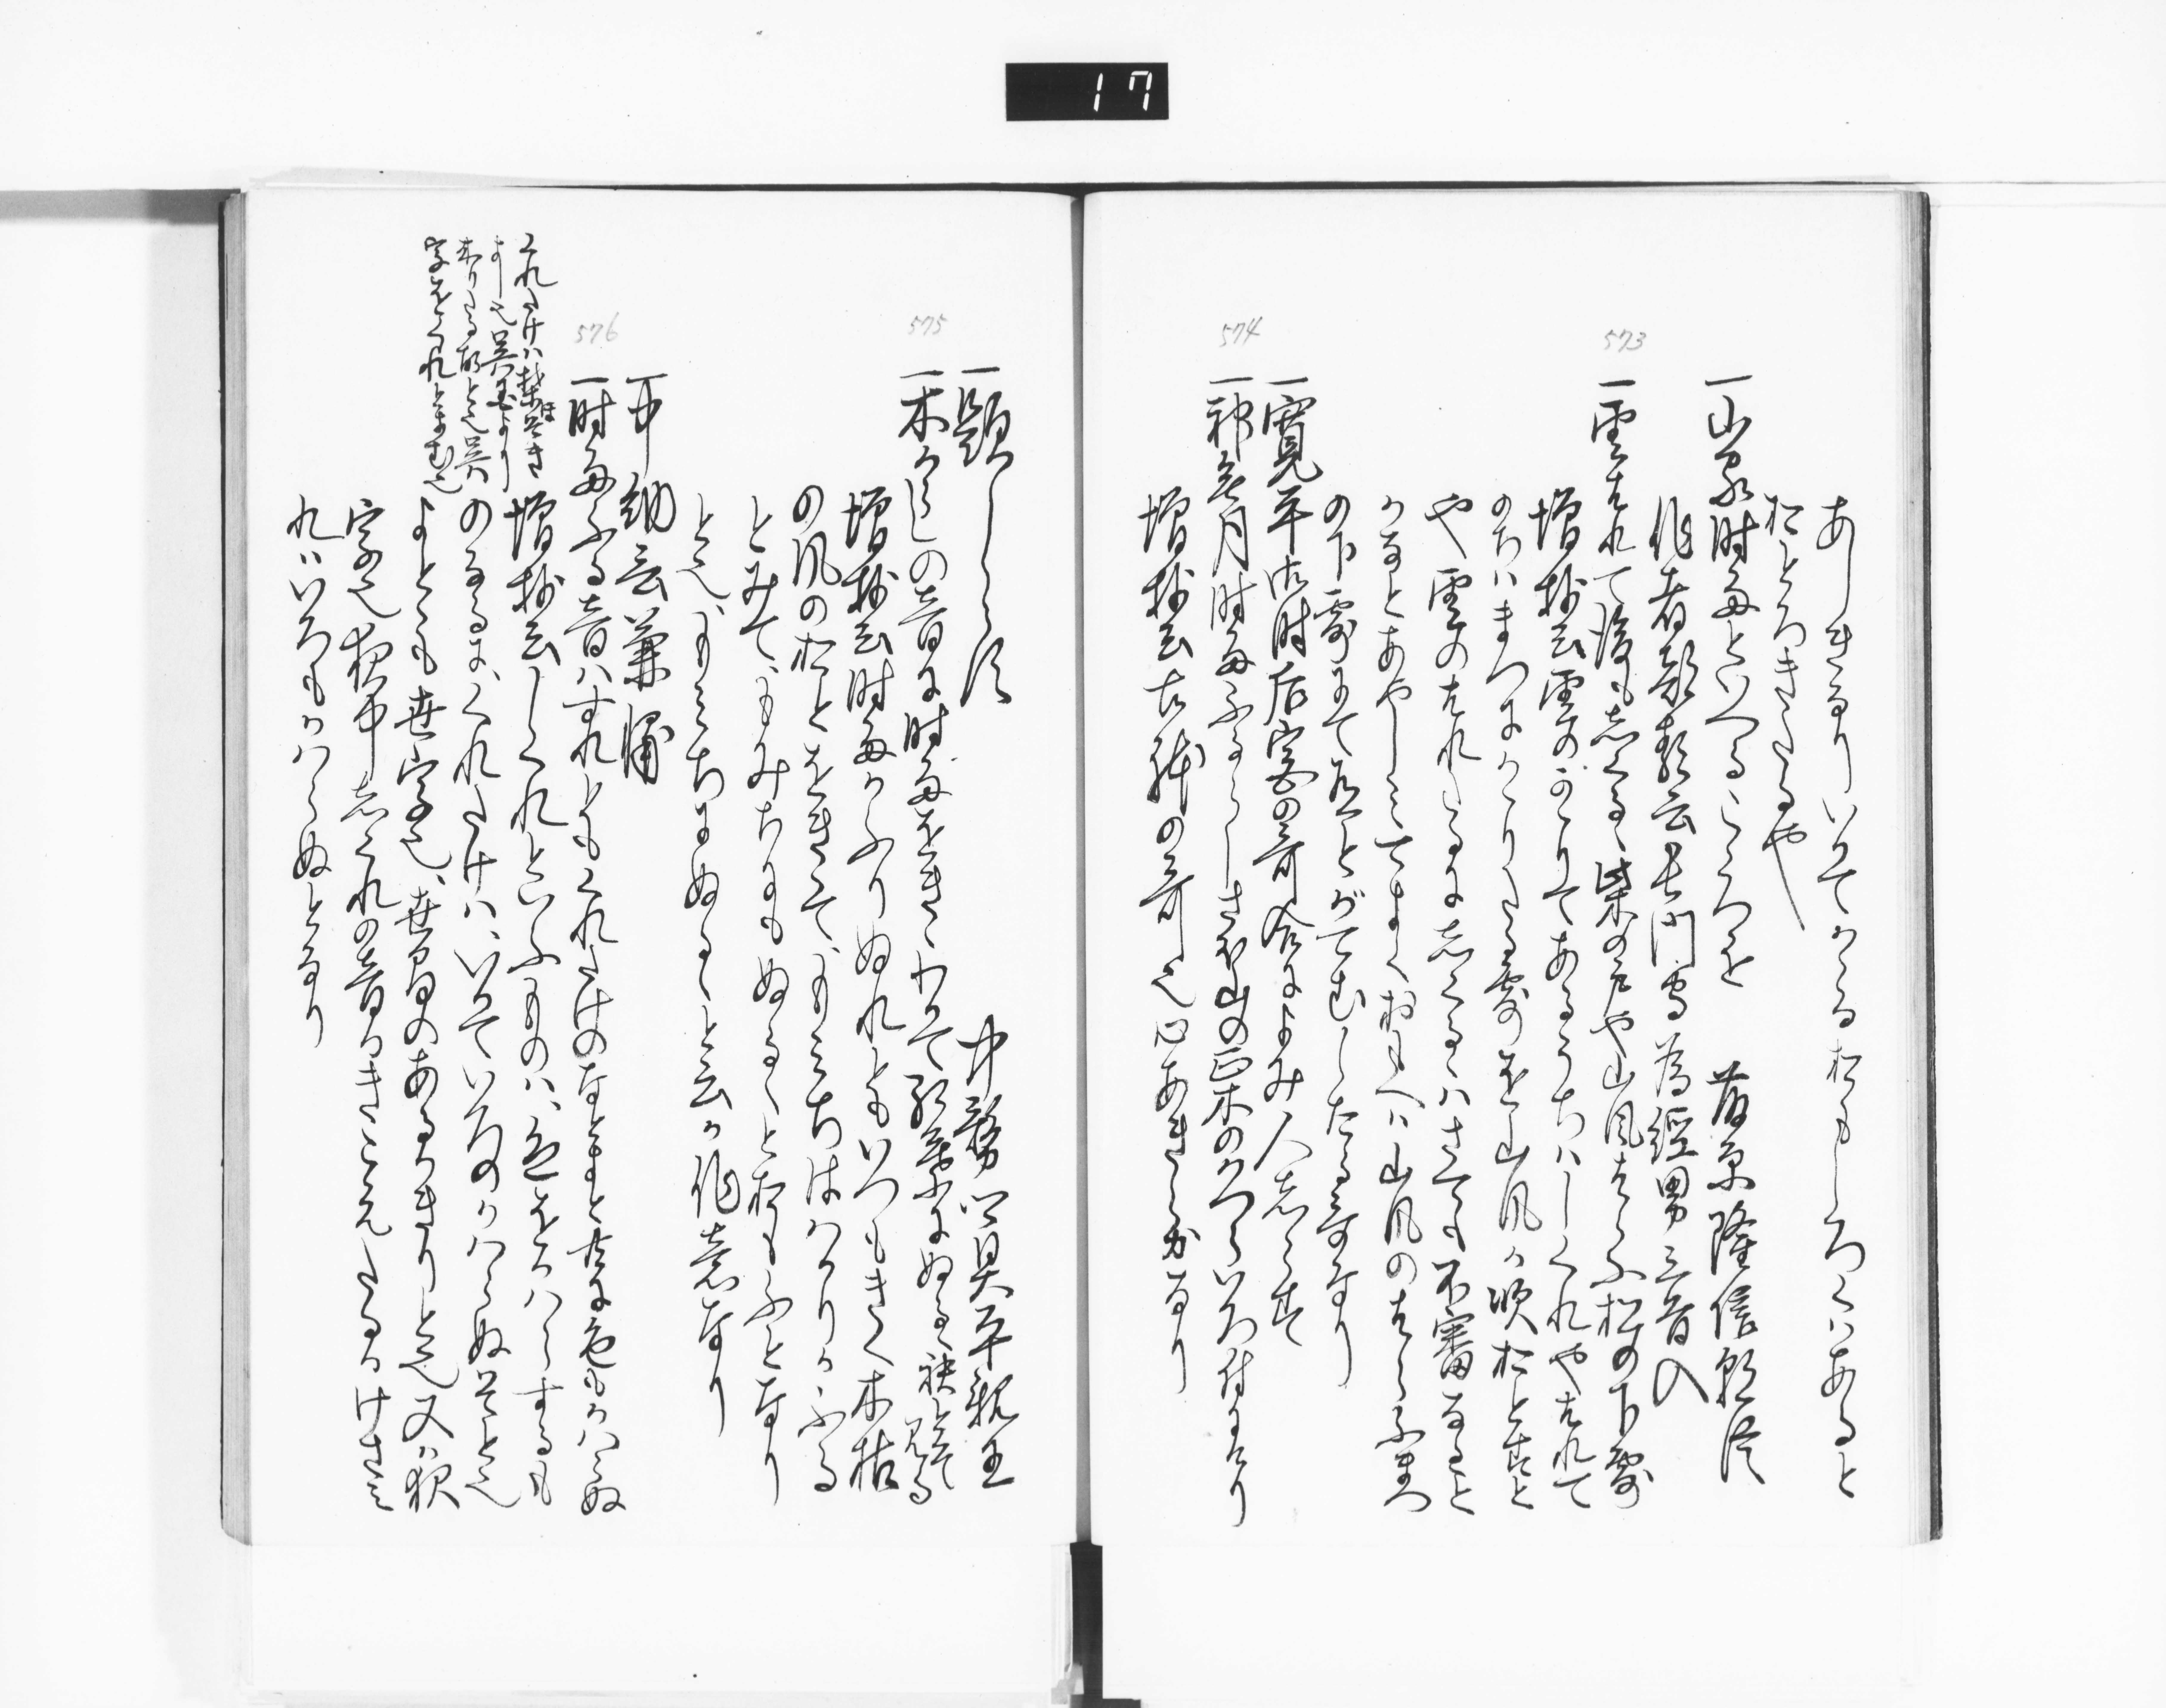 17
あしきなりいかてかゝる松もしろくはあると
松とろきたるや
一山家時雨といへるこゝろを　藤原隆信朝臣
作者部類云長門守為経男三首入
573
一雲はれて後もしくるゝ柴の戸や山風はらふ松の下露
増抄云雲のかゝりてあるうちはしくれやはれて
のちはまつにかゝりたる露を山風か吹おとすと
や雲のはれたるにしくるゝはさても不審なると
かなとあやしみてよく おもへは山風のはらふまつ
の下露にて有とかてむしたる哥なり
一寛平御時后宮の哥合によみ人しらす
574
一神無月時雨ふるらしさほ山の正木のかつらいろ付まさり
増抄云古躰の哥也心あきらかなり
一題しらす　中務卿具平親王
575
一木からしの音に時雨をきゝわかて紅葉にぬるゝ袂とそ見る
増抄云時雨かふりぬれともいつもきく木枯
の風の おとをきゝて、もみちはかりかふる
とみて、もみちにもぬるゝとおもふとなり
と也、もみちにぬるゝと云か作意なり
一中納言兼輔
576
一時雨ふる音はすれともくれたけのなとよと共に色もかはらぬ
増抄云しくれといふものは、色をかはらするも
のなるに、くれたけは、いかていろのかはらぬそと也
よとゝも世字也、世間のあるかきりと也又は夜
字也夜中しくれの音かきこえたるかけさみ
れはいろもかはらぬとなり
くれたけは葉ほそき
よし也呉国より
来りたる故と也呉
字をくれとよむ也